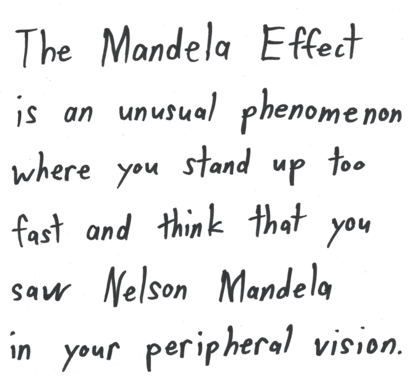 The Mandela Effect
is an unusual phenomenon
where you stand up too
fast and think that you
saw Nelson Mandela
in your peripheral vision.